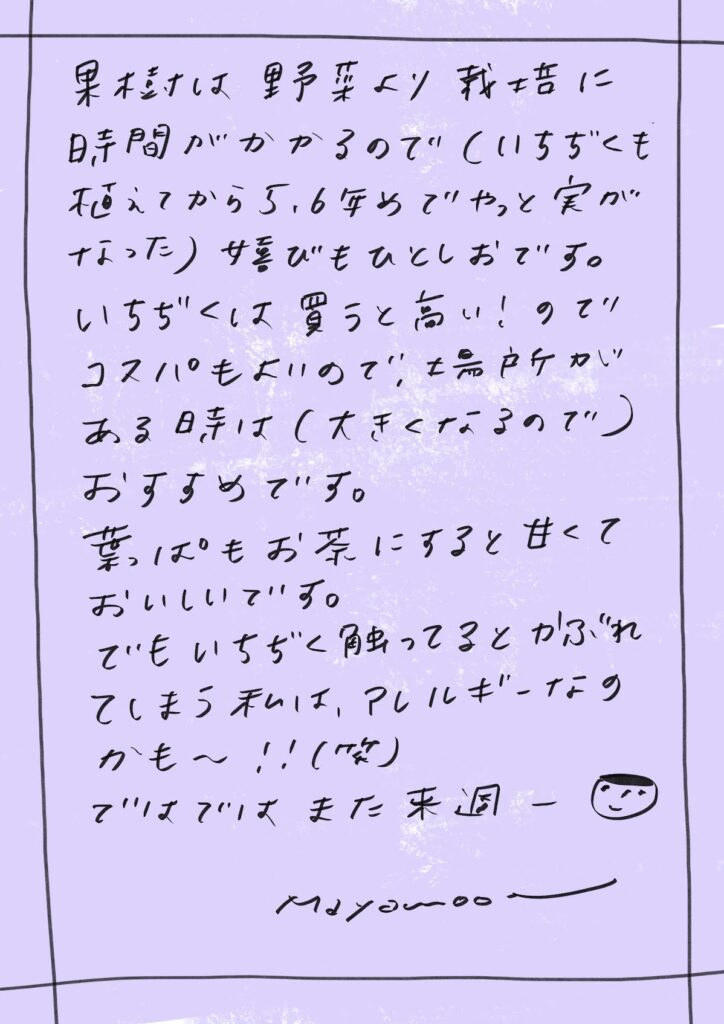 果樹は 野菜より 栽培に
時間がかかるので(いちぢくも
植えてから5、6年めでやっと実が
なった)嬉びもひとしおです。
いちぢくは買うと高い!ので
コスパもよいので、場所が
ある時は(大きくなるので)
おすすめです。
葉っぱもお茶にすると甘くて
おいしいです。
でもいちぢく触ってるとかぶれ
てしまう私は、アレルギーなの
かも〜!!(笑)
ではではまた来週ー
Mayamoo